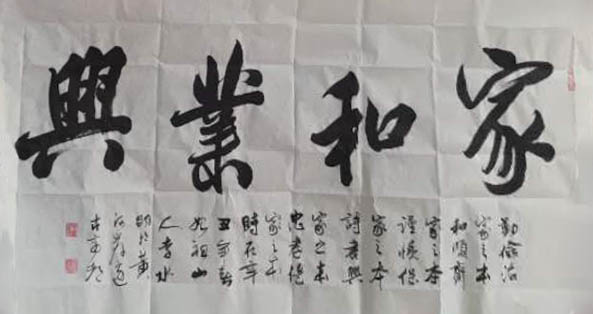 家和業興
勤儉治
家之本
和順齊
家之本
謹慎保
家之本
詩書興
家之本
忠孝傳
家之本
時在辛
丑年春
始祖山
人李水
明於黃
河岸邊
古商都